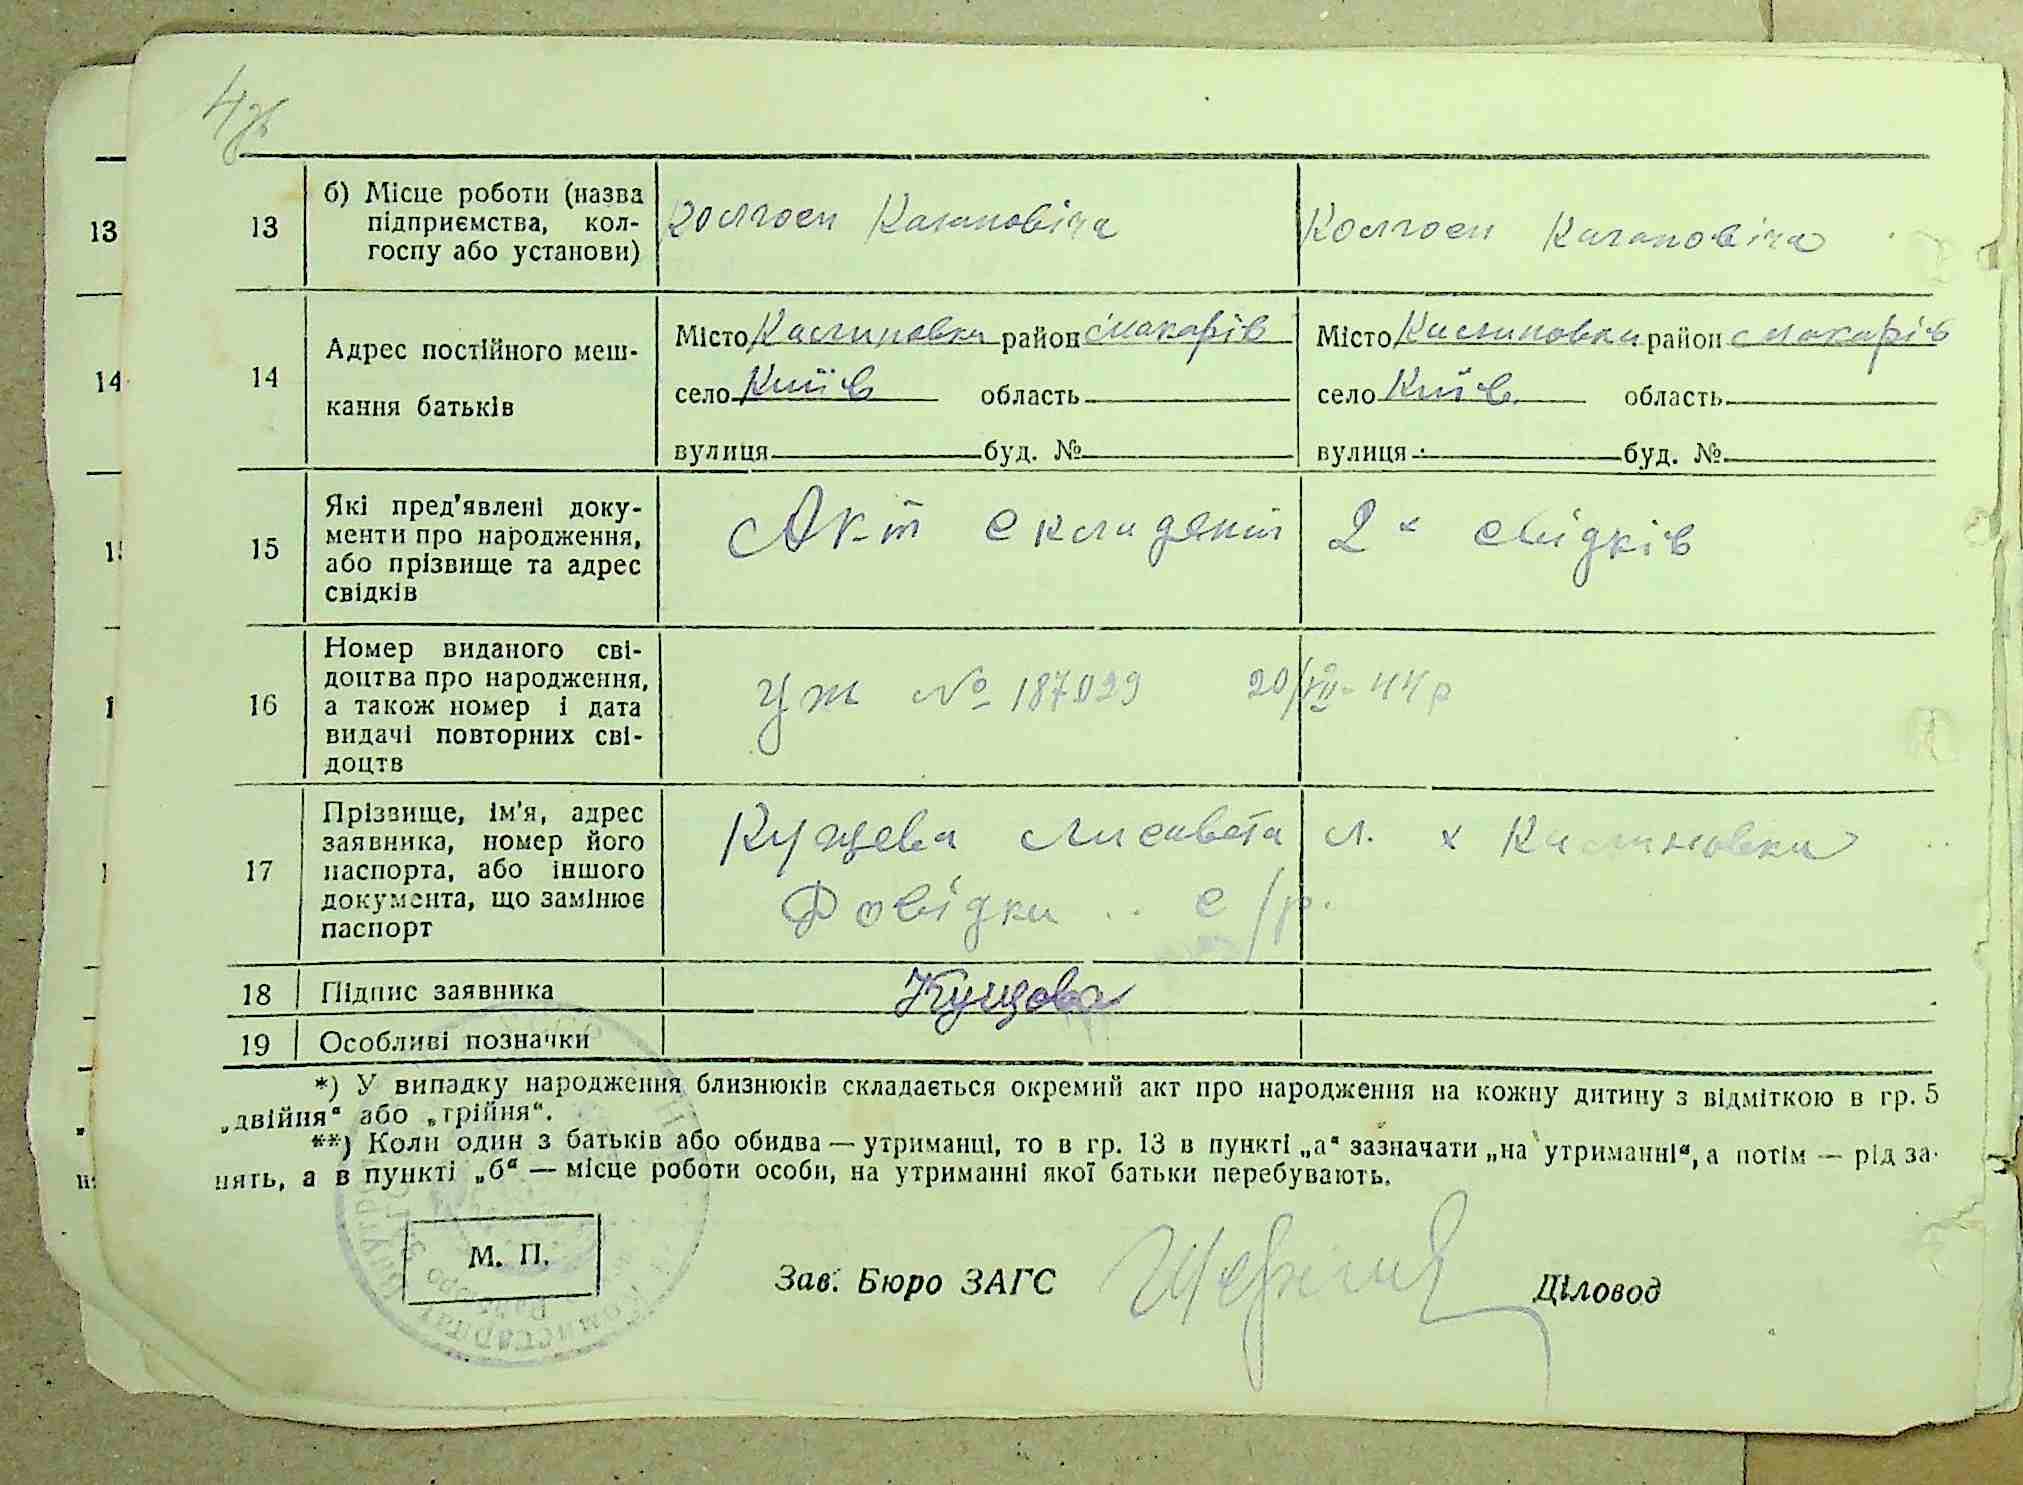 4
13
13 б) Місце роботи (назва підприємства, колгоспу або установи) Колгосп Кагановіча Колгосп Кагановіча
14
14 Адрес постійного мешкання батьків
Місто Калиновка район Макарів Місто Калиновка район Макарів
село Київ область село Київ область
вулиця буд. № вулиця буд. №
15 Які пред'явлені документи про народження, або прізвище та адрес свідків Акт складений 2х свідків
16 Номер виданого свідоцтва про народження, а також номер і дата видачі повторних свідоцтв УЖ № 187029 20/VIII-44р
17 Прізвище, ім'я, адрес заявника, номер його паспорта, або іншого документа, що замінює паспорт Кущева Лисавета Л. х Калиновка
Довідка с/р.
18 Підпис заявника Кущова
19 Особливі позначки
*) У випадку народження близнюків складається окремий акт про народження на кожну дитину з відміткою в гр. 5
„двійня“ або „трійня“.
**) Коли один з батьків або обидва — утриманці, то в гр. 13 в пункті „а“ зазначати „на утриманні“, а потім — рід за-
нять, а в пункті „б“ — місце роботи особи, на утриманні якої батьки перебувають.
М. П.
Зав. Бюро ЗАГС Діловод